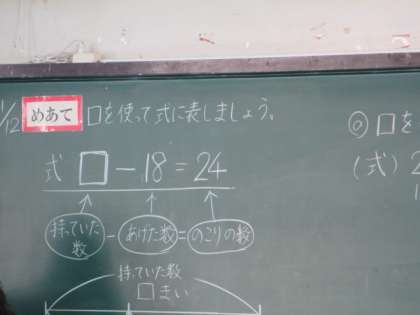 1/12 めあて □を使って式に表しましょう。
式 □ - 18 = 24
持っていた数 - あげた数 = のこりの数
持っていた数
□まい
◎ □を
(式) 2